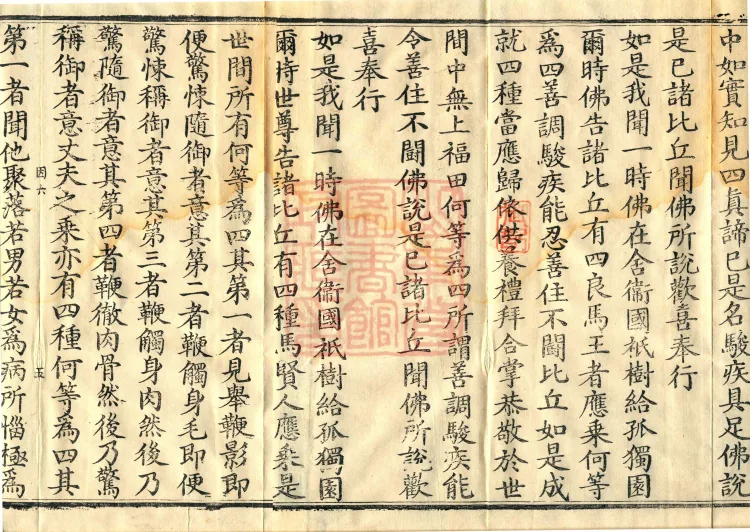 中如實知見四真諦已是名駿疾具足佛說
是已諸比丘聞佛所說歡喜奉行
如是我聞一時佛在舍衞國祇樹給孤獨園
爾時佛告諸比丘有四良馬王者應乘何等
為四善調駿疾能忍善住不鬪比丘如是成
就四種當應歸依供養禮拜合掌恭敬於世
間中無上福田何等為四所謂善調駿疾能
令善住不鬪佛說是已諸比丘聞佛所說歡
喜奉行
如是我聞一時佛在舍衞國祇樹給孤獨園
爾時世尊告諸比丘有四種馬賢人應乘是
世間所有何等為四其第一者見舉鞭影即
便驚悚隨御者意其第二者鞭觸身毛即便
驚悚稱御者意其第三者鞭觸身肉然後乃
驚隨御者意其第四者鞭徹肉骨然後乃驚
稱御者意丈夫之乘亦有四種何等為四其
因六 五
第一者聞他聚落若男若女為病所惱極為